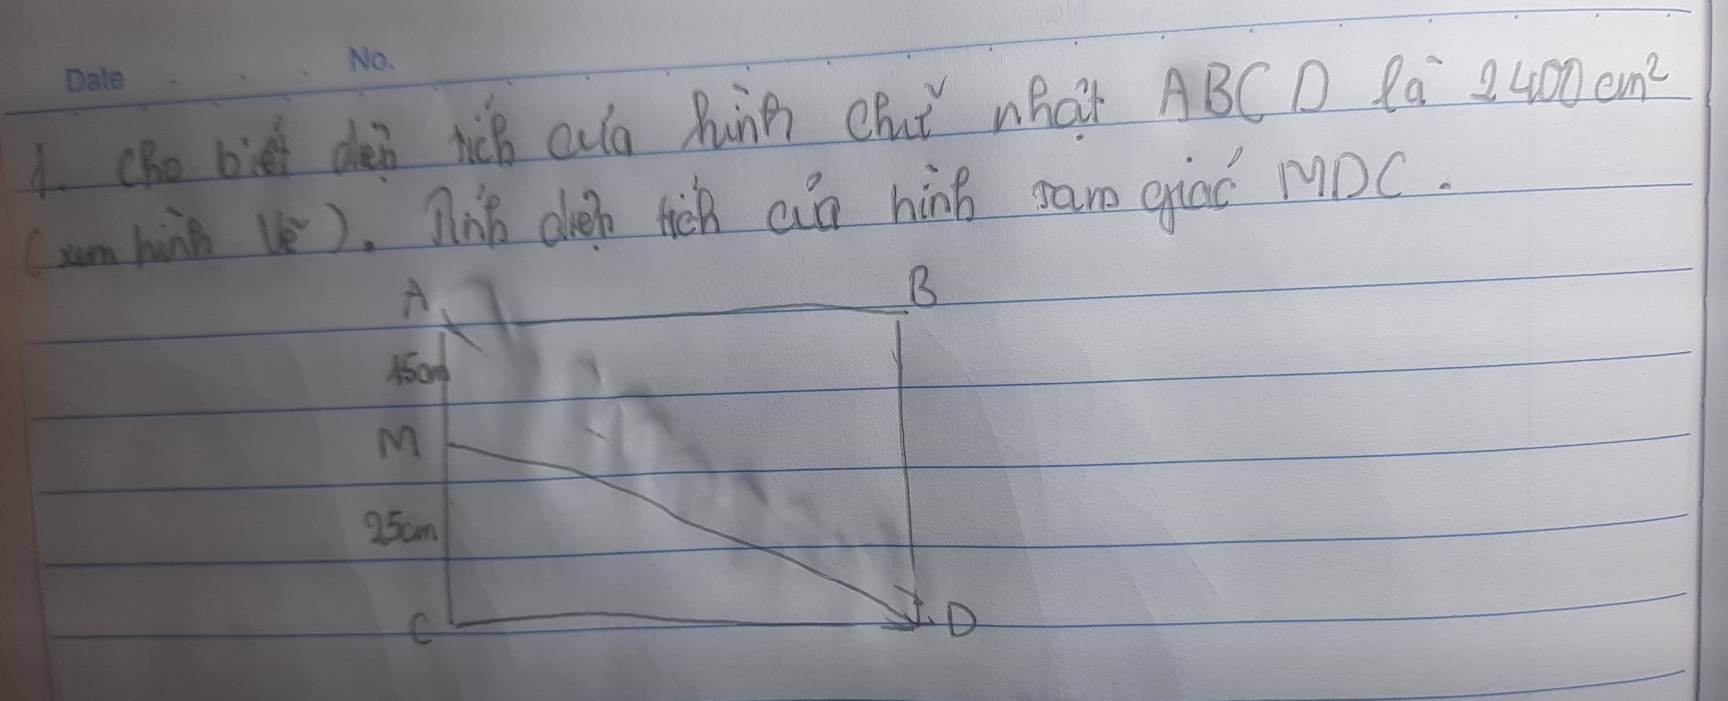 Date No.
1. Cho biết diện tích của hình chữ nhật ABCD là 2400 cm²
(xem hình vẽ). Tính diện tích của hình tam giác MDC.
A B
15cm
M
25cm
C D